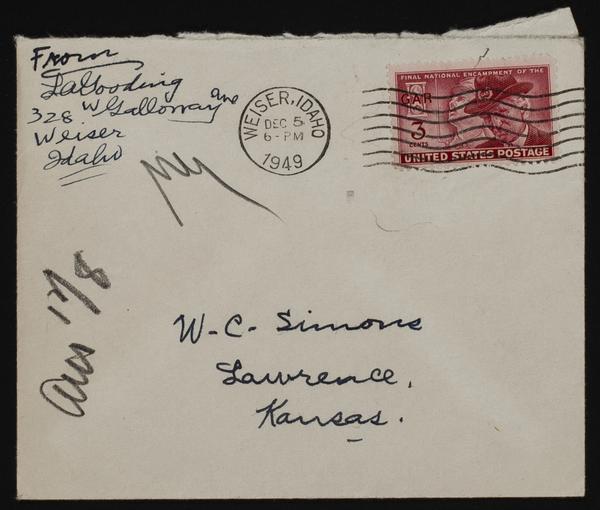 From
LaGooding
328 W Galloway Ave
Weiser
Idaho
WEISER, IDAHO
DEC 5
6-PM
1949
FINAL NATIONAL ENCAMPMENT OF THE
GAR
3
CENTS
UNITED STATES POSTAGE
Ans 12/8
W-C- Simons
Lawrence,
Kansas.